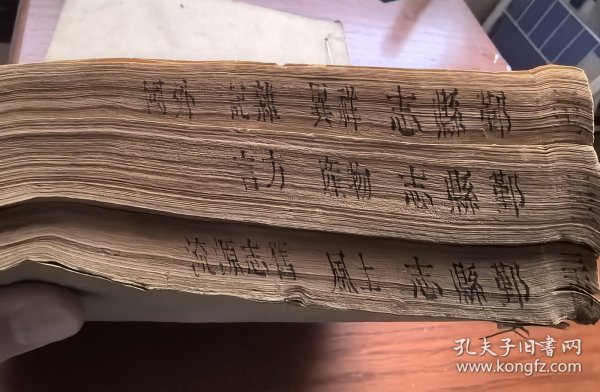 鄞縣志 祥異 雜記
鄞縣志 物產 方言
鄞縣志 土風 舊志源流
孔夫子旧书网
www.kongfz.com